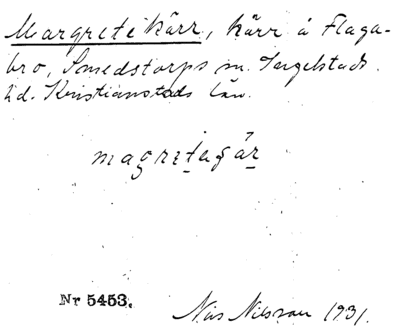 Margretekärr, kärr å Flaga-
bro, Smedstorps sn. Ingelstads
hd. Kristianstads län.
magretaçär
Nr 5453.
Nils Nilsson 1931.